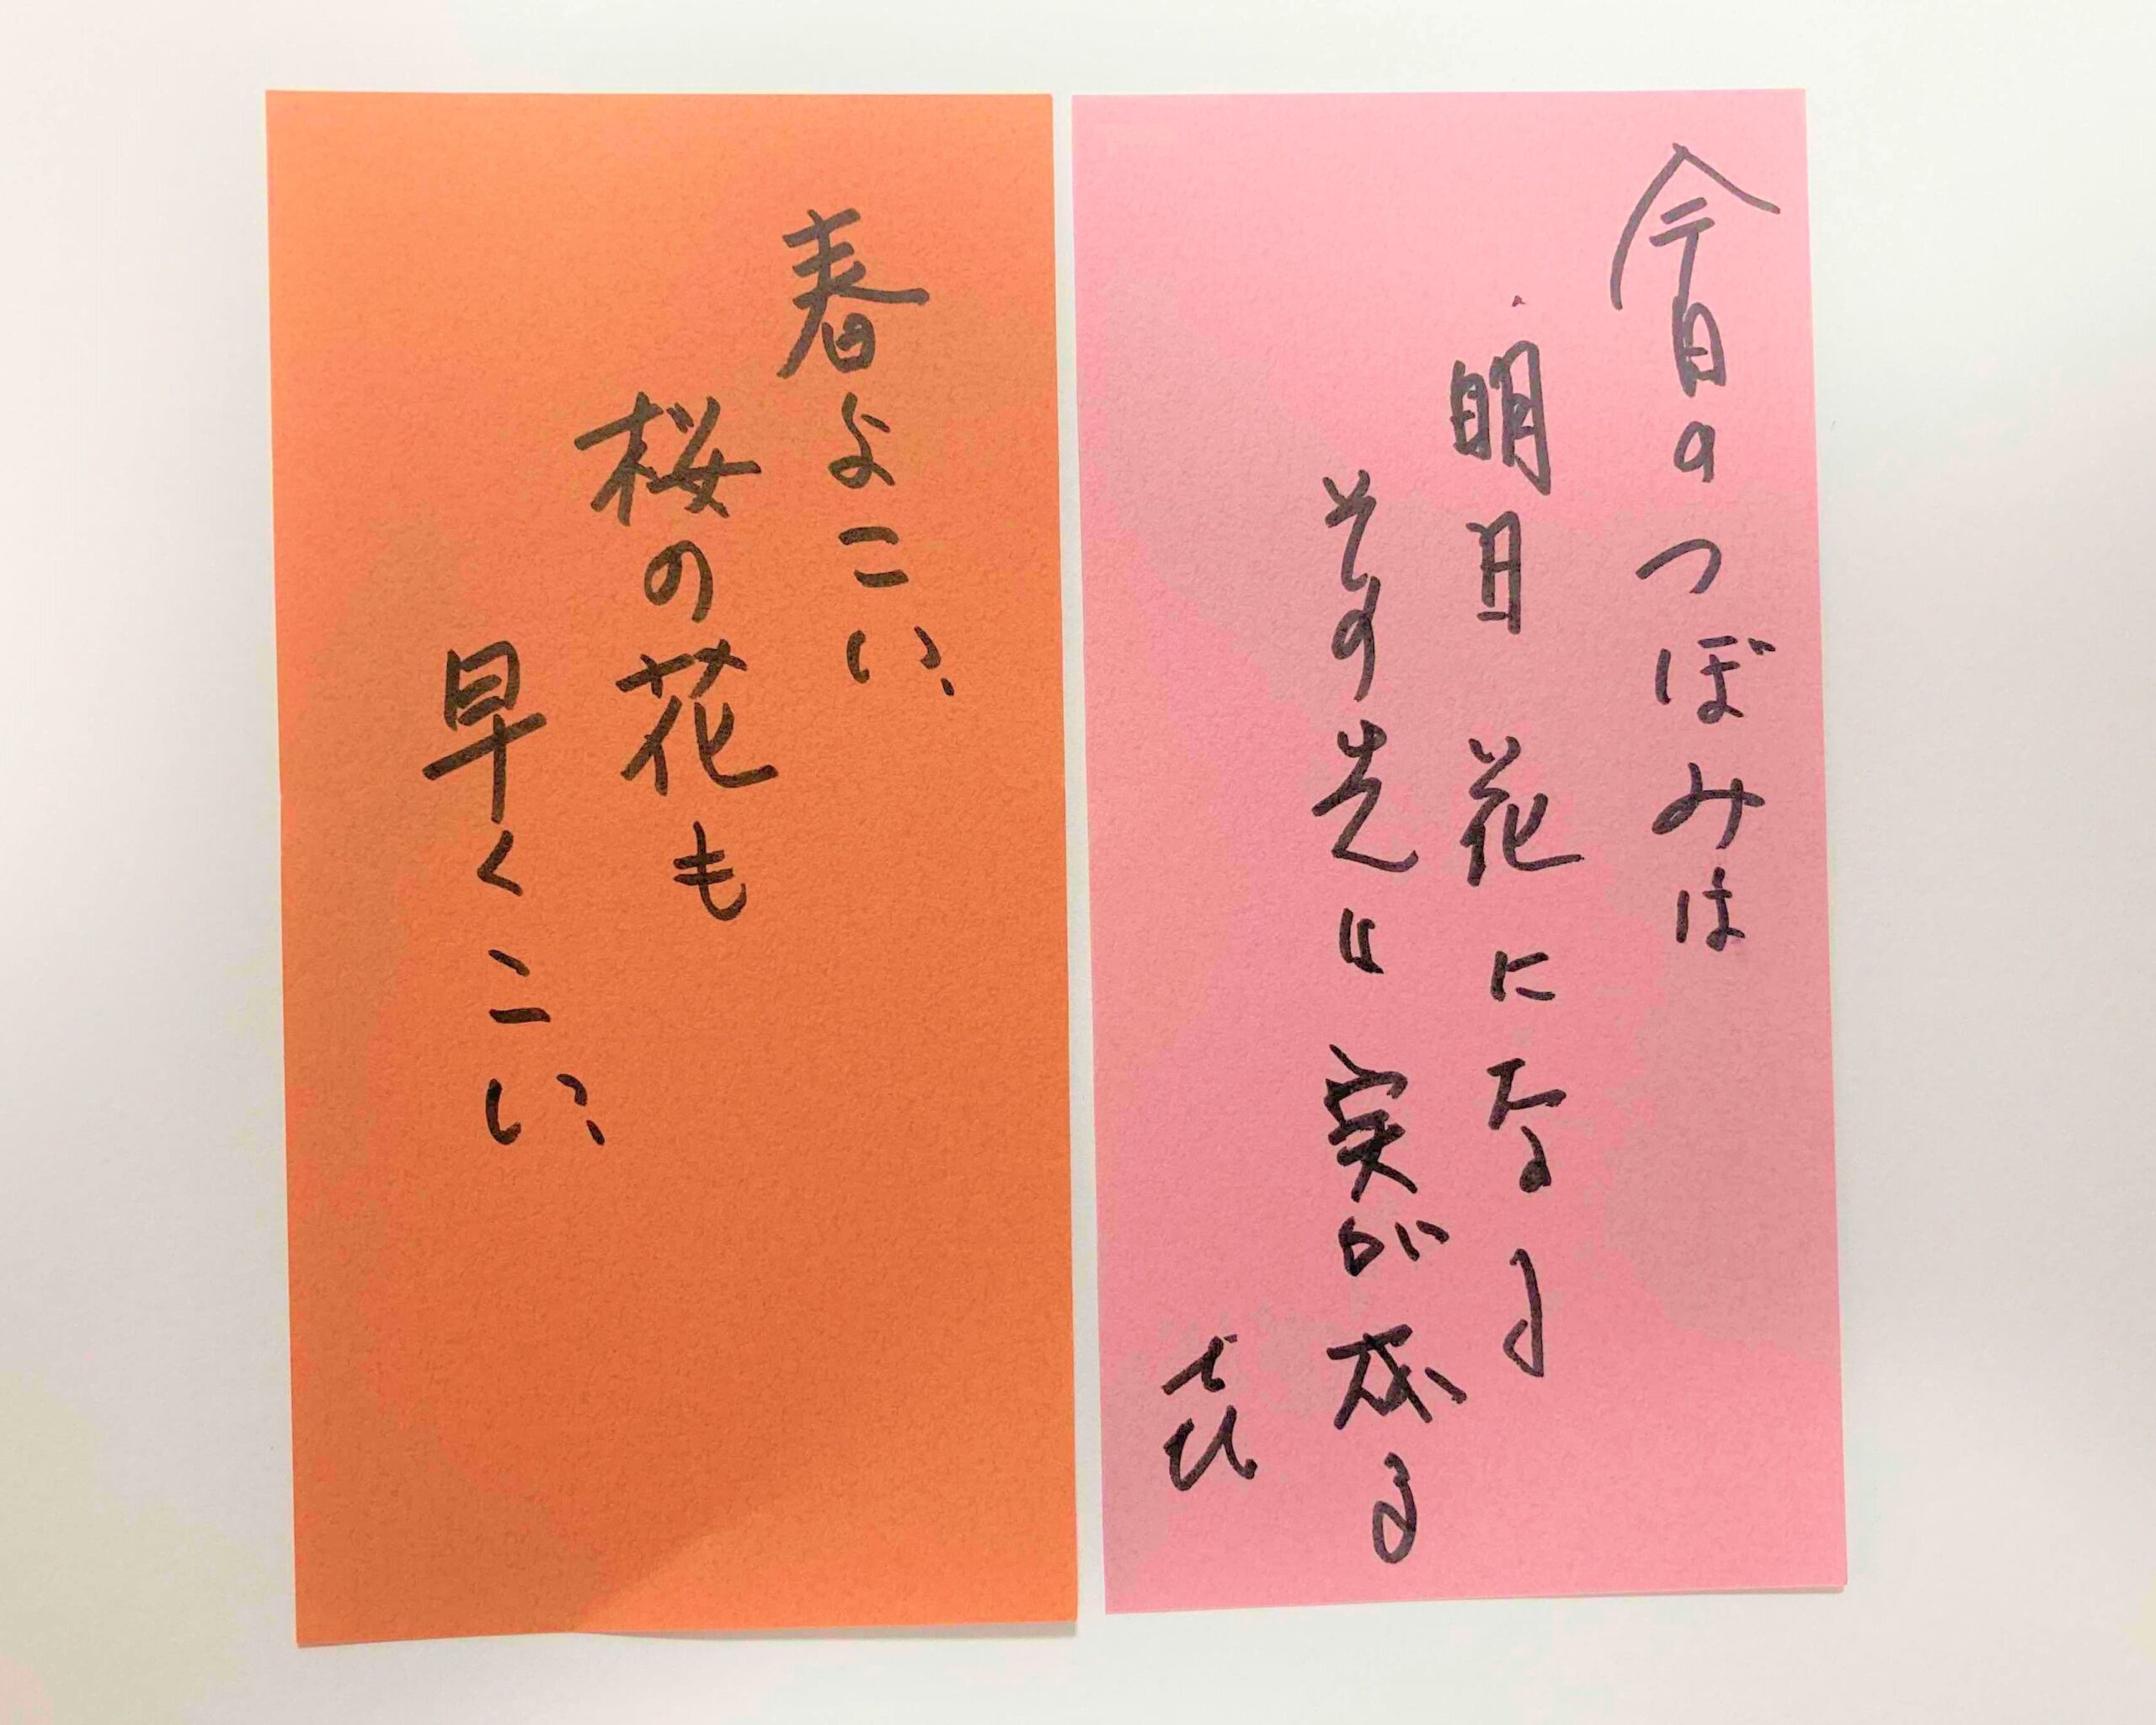 今日のつぼみは
明日花になる
その先に実が成る
春よこい、
桜の花も
早くこい、